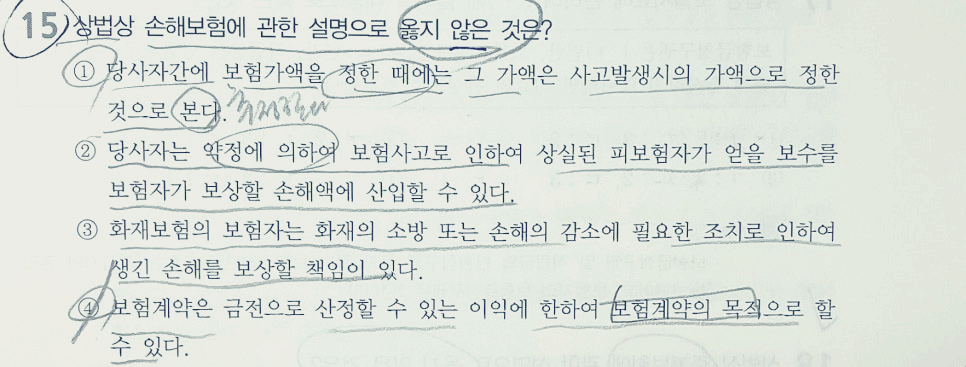 15 상법상 손해보험에 관한 설명으로 옳지 않은 것은?
① 당사자간에 보험가액을 정한 때에는 그 가액은 사고발생시의 가액으로 정한
것으로 본다. 추정한다
② 당사자는 약정에 의하여 보험사고로 인하여 상실된 피보험자가 얻을 보수를
보험자가 보상할 손해액에 산입할 수 있다.
③ 화재보험의 보험자는 화재의 소방 또는 손해의 감소에 필요한 조치로 인하여
생긴 손해를 보상할 책임이 있다.
④ 보험계약은 금전으로 산정할 수 있는 이익에 한하여 보험계약의 목적으로 할
수 있다.